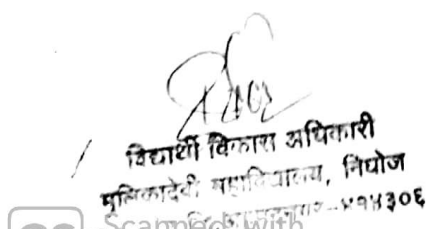 विद्यार्थी विकास अधिकारी
मुलिकादेवी महाविद्यालय, निघोज
४१४३०६
Scanned with